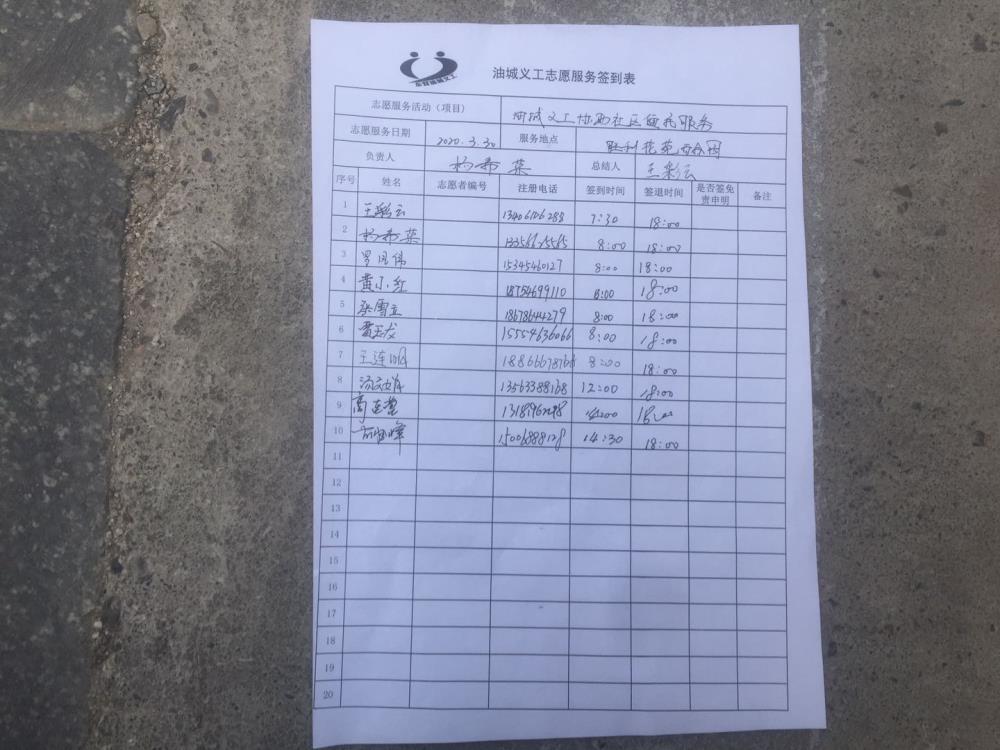 油城义工志愿服务签到表
志愿服务活动（项目） 油城义工协西社区值班服务
志愿服务日期 2020.3.30 服务地点 胜利花苑
负责人 杨希英 总结人 王彩云
序号 姓名 志愿者编号 注册电话 签到时间 签退时间 是否签免责申明 备注
1 王彩云 13406126288 7:30 18:00
2 杨希英 8:00 18:00
3 罗凤伟 15345460127 8:00 18:00
4 黄小红 18754699110 8:00 18:00
5 18678644279 8:00 18:00
6 15554636066 8:00 18:00
7 王连 18866678768 8:00 18:00
8 13563388168 12:00 18:00
9 高 14:00 18:00
10 15006888128 14:30 18:00
11
12
13
14
15
16
17
18
19
20